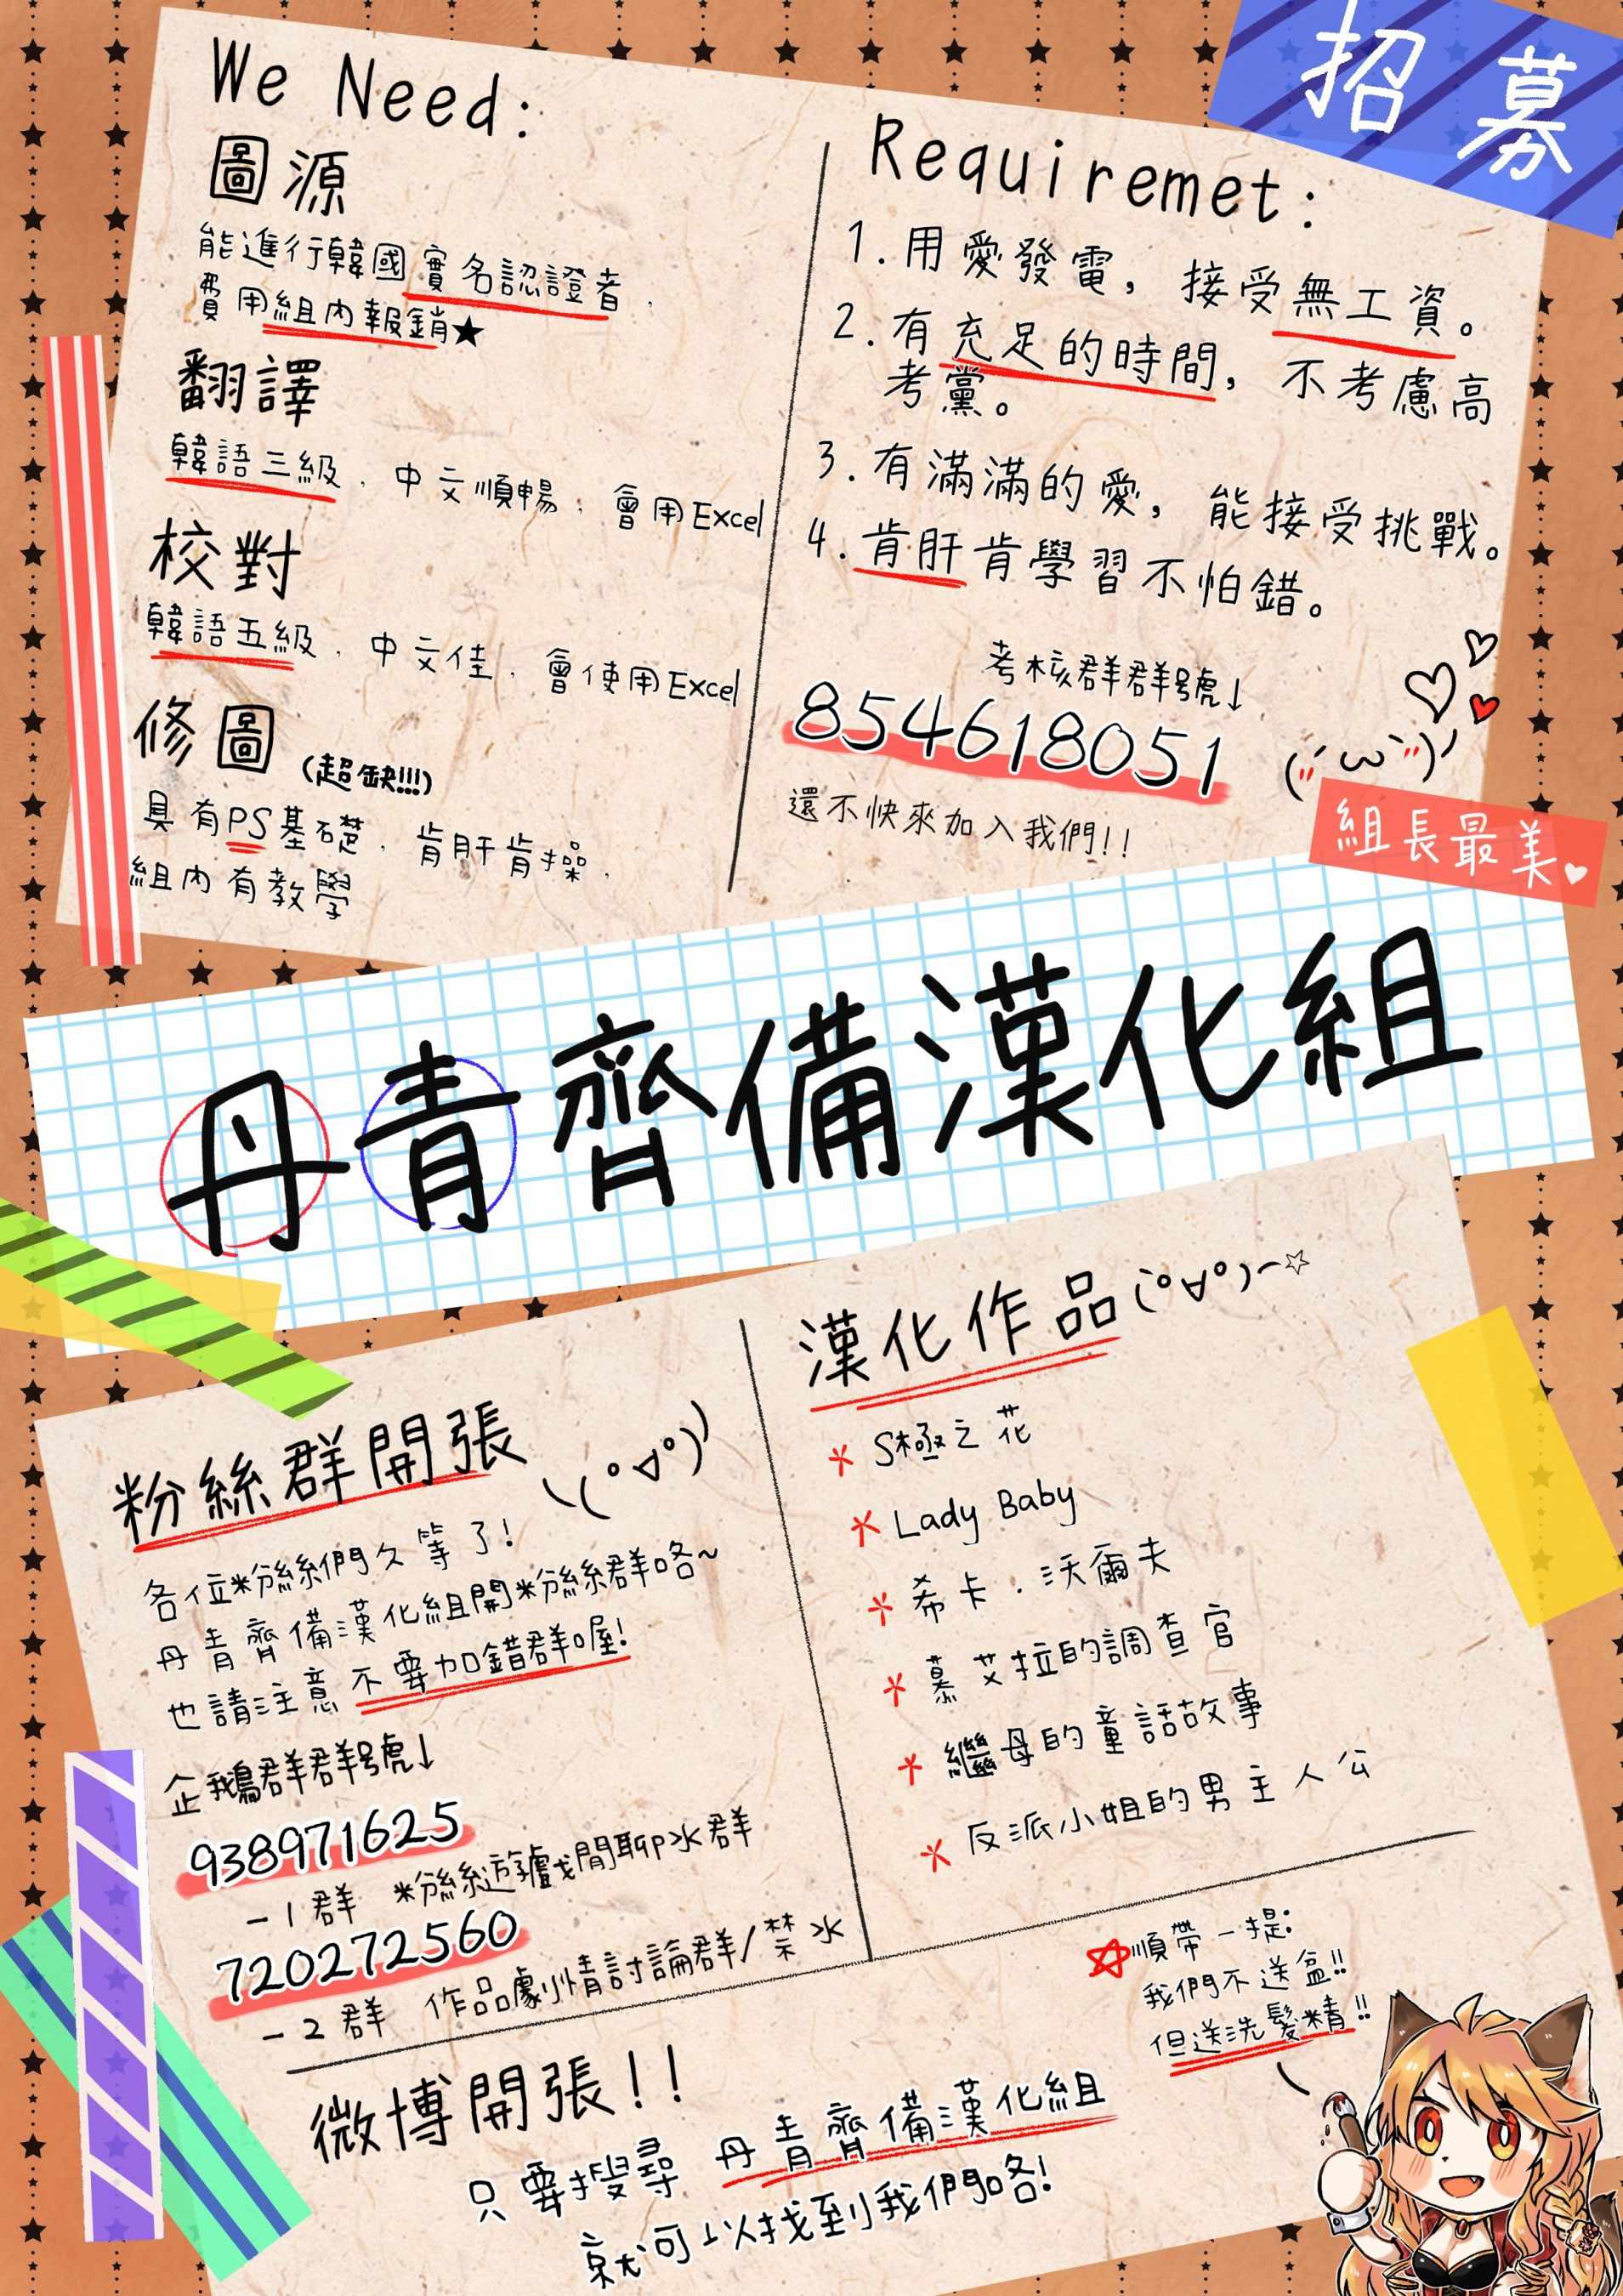 招募
We Need:
圖源
能進行韓國實名認證者,
費用組內報銷★
翻譯
韓語三級,中文順暢,會用Excel
校對
韓語五級,中文佳,會使用Excel
修圖(超缺!!!)
具有PS基礎,肯肝肯操,
組內有教學
Requiremet:
1.用愛發電,接受無工資。
2.有充足的時間,不考慮高
考黨。
3.有滿滿的愛,能接受挑戰。
4.肯肝肯學習不怕錯。
考核群群號↓
854618051
還不快來加入我們!!
組長最美♥
丹青齊備漢化組
粉絲群開張\(°∀°)/
各位粉絲們久等了!
丹青齊備漢化組開粉絲群咯~
也請注意不要加錯群喔!
企鵝群群號↓
938971625
-1群 粉絲遊戲閒聊水群
720272560
-2群 作品劇情討論群/禁水
漢化作品(°∀°)~☆
*S極之花
*Lady Baby
*希卡·沃爾夫
*慕艾拉的調查官
*繼母的童話故事
*反派小姐的男主人公
☆順帶一提:
我們不送盆!!
但送洗髮精!!
微博開張!!
只要搜尋 丹青齊備漢化組
就可以找到我們咯!